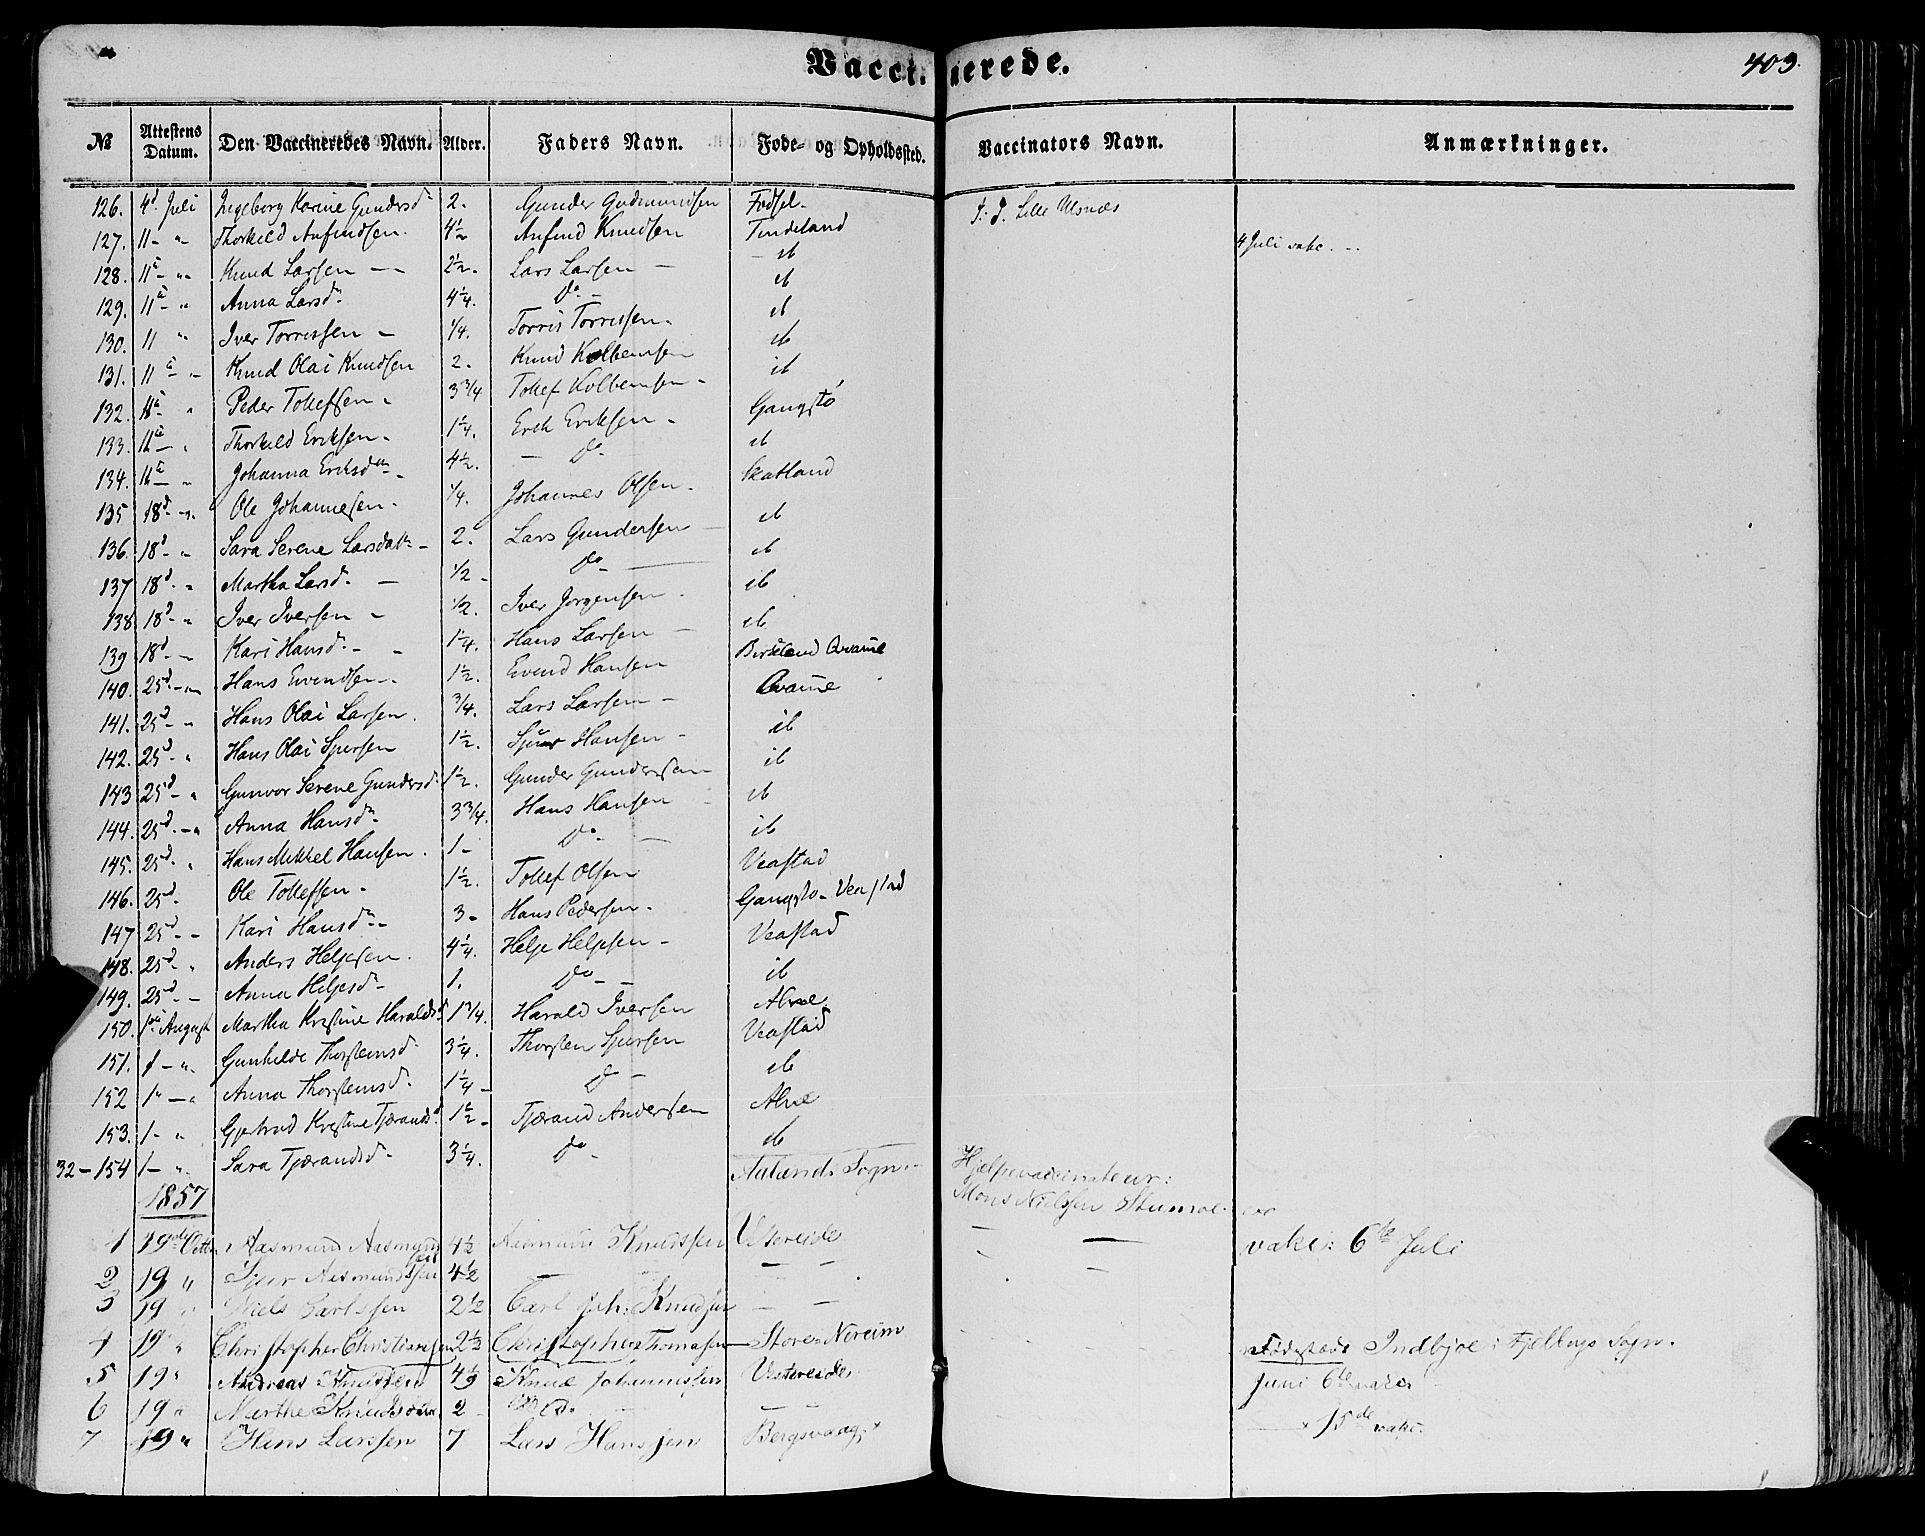 Vaccinerede.
403.
№ Attestens Datum. Den Vaccineredes Navn. Alder. Faders Navn. Føde- og Opholdssted. Vaccinators Navn. Anmærkninger.
126. 4d Juli Ingeborg Karine Gundersd 2. Gunder Gudmundsen Fodsel- J. J. Lille Ulsnæs
127. 11 - " Thorkild Anfindsen. 4½ Anfind Knudsen Tindeland 4 Juli vakc.
128. 11 - " Knud Larsen 2½. Lars Larsen ib
129. 11 - " Anna Larsd. 4¼. Do ib
130. 11 " Iver Torrissen ¼. Torris Torrissen ib
131. 11 - " Knud Olai Knudsen 2. Knud Kolbensen ib
132. 11 " Peder Tollefsen 3¾ Tollef Kolbensen ib
133. 11 - " Thorkild Eriksen 1¼. Erik Eriksen Gangstø
134. 11 - " Johanna Eriksd. 4½. Do ib
135 18d - " Ole Johannesen ¼. Johannes Olsen Skatland
136. 18d - " Sara Serene Larsdatr 2. Lars Gundersen ib
137 18d - " Martha Larsd. ½ Do ib
138 18d - " Iver Iversen ½. Iver Jørgensen ib
139 18d - Kari Hansd. 1¼. Hans Larsen ib
140. 25d - " Hans Evendsen 1½. Evend Hansen Birkeland Qvame
141. 25d - " Hans Olai Larsen. ¾. Lars Larsen Qvame
142. 25d - " Hans Olai Sjursen 1½. Sjur Hansen ib
143 25d - " Gunvor Serene Gundersd. 1½. Gunder Gundersen ib
144. 25d - " Anna Hansd 3¾. Hans Hansen ib
145. 25d - " Hans Mikkel Hansen. 1 - Do ib
146. 25d - Ole Tollefsen 1½. Tollef Olsen Veastad
147 25d - - Kari Hansd 3 - Hans Pedersen Gangstø - Veastad
148. 25d - " Anders Heljesen. 4¼. Helje Heljesen Veastad
149. 25d - - Anna Heljesd 1. Do ib
150. 1ste August Martha Kristine Haraldsd 1¾. Harald Iversen Alne
151. 1 - " Gunhilde Thorsteinsd 3¼. Thorsten Sjursen Veastad
152 1 - " Anna Thorsteinsd. 1¼ - Do ib
153. 1 - " Gjertrud Kristine Tjærandsd. 1½ - Tjærand Andersen Alne
32 - 154 1 - " Sara Tjærandsd. 3¼. Do ib
1857 Aalands Sogn Hjelpevaccinateur:
Mons Nielssen
1 19de Octbr. Aasmund Aasmundsen 4½ Aasmund Knudssen Vestereide vakc: 6te Juli
2 19 " Sjur Aasmundssen 4½ - -
3 19 " Niels Carlssen 2½ Carl Joh: Knudsen - -
4 19 " Christopher Christiansen 2½ Christopher Thomasen Store Noreim Fødested Indbjoe i Fjelbergs Sogn.
5 19 " Andreas Knudssen 4½ Knud Johannessen Vestereide Juni 6te vakc
6 19 " Marthe Knudsdatter 2 Do - - 15de vakc.
7 19 " Hans Larssen 7 Lars Hanssen Bergsvaag